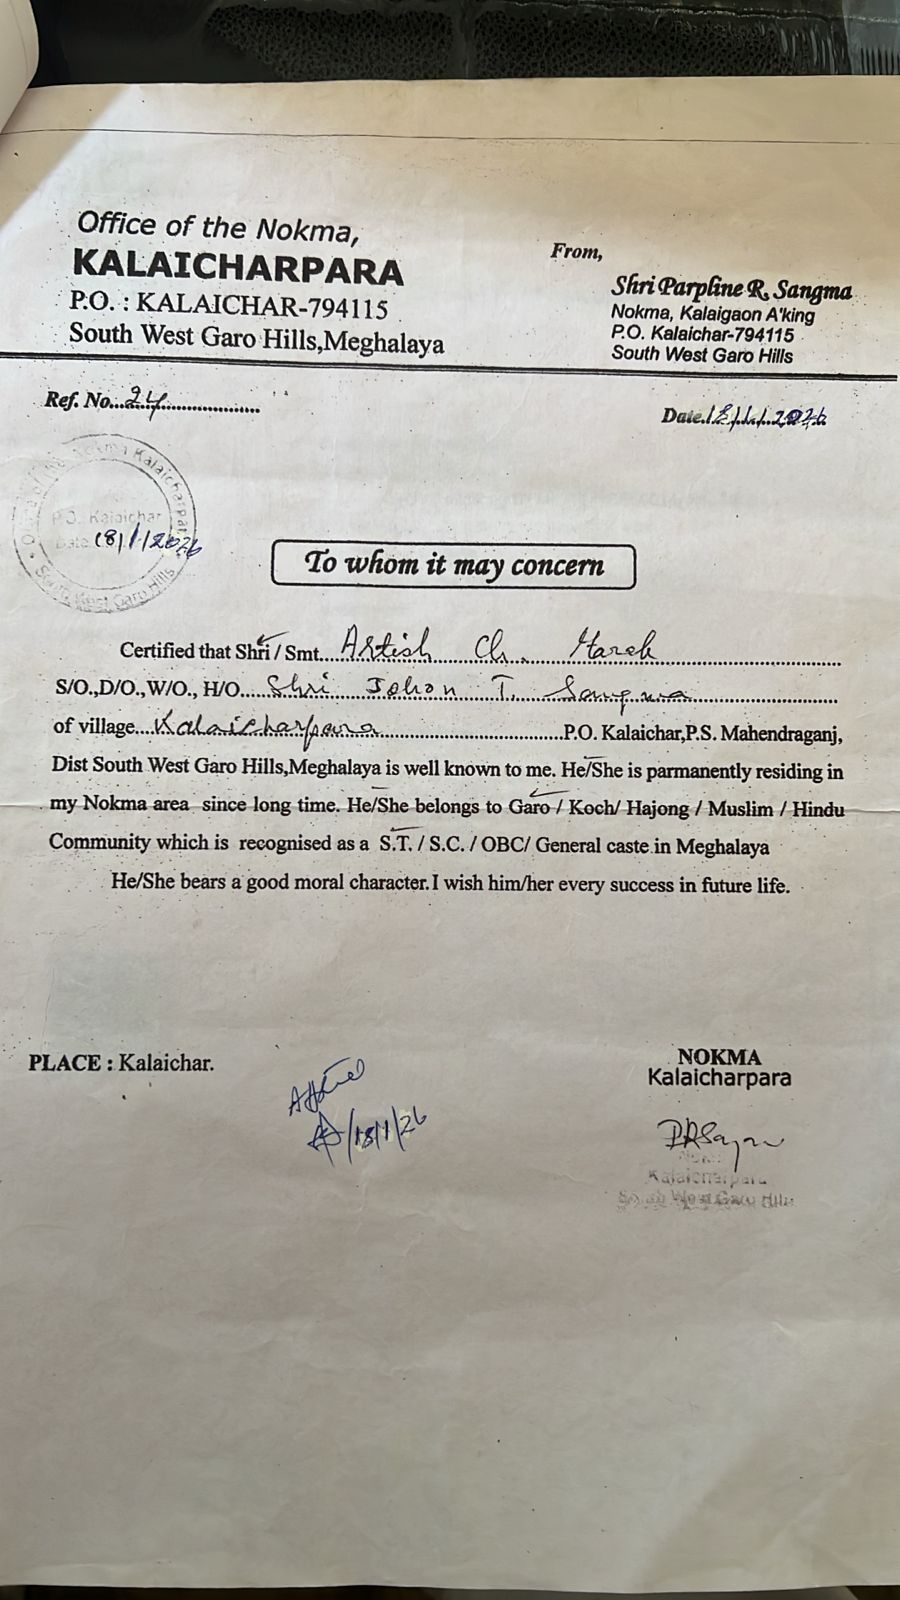 Office of the Nokma,
KALAICHARPARA
P.O. : KALAICHAR-794115
South West Garo Hills,Meghalaya
From,
Shri Parpline R. Sangma
Nokma, Kalaigaon A'king
P.O. Kalaichar-794115
South West Garo Hills
Ref. No...24....................
Date.18/1/2026
Office of the Nokma Kalaicharpara
P.O. Kalaichar
Date 18/1/2026
South West Garo Hills
To whom it may concern
Certified that Shri / Smt... Ch. Marak
S/O.,D/O.,W/O., H/O....Shri Johon T. Sangma
of village...Kalaicharpara..............................P.O. Kalaichar,P.S. Mahendraganj,
Dist South West Garo Hills,Meghalaya is well known to me. He/She is parmanently residing in
my Nokma area since long time. He/She belongs to Garo / Koch/ Hajong / Muslim / Hindu
Community which is recognised as a S.T. / S.C. / OBC/ General caste in Meghalaya
He/She bears a good moral character.I wish him/her every success in future life.
PLACE : Kalaichar.
18/1/26
NOKMA
Kalaicharpara
Kalaicharpara
South West Garo Hills